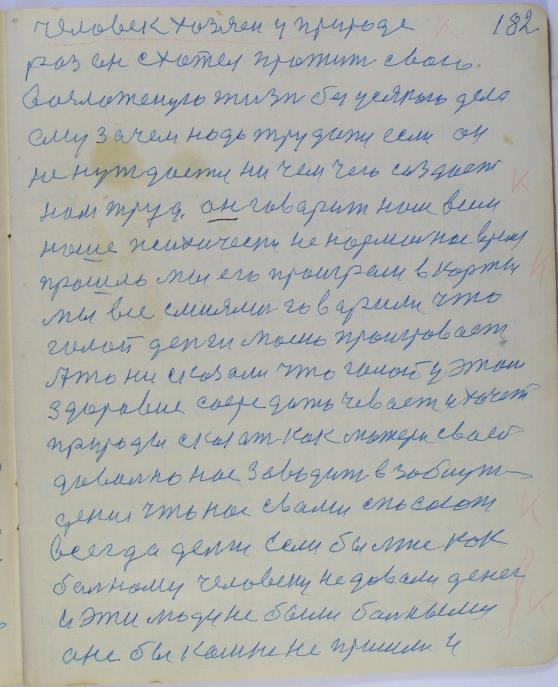 182
человек хозяен у природе
раз он схотел прожит свою
возложеную жизн без усякого дела
ему зачем надь трудится если он
не нуждается ни чем чего создает
нам труд. он говарит нам всем
наше психически не нормалное время
прошль мы его проиграли в карты
мы все смиями говарили что
голой денги мошь проигровает
Ато ни сказали что голой у этом
здоровие соередоточевает и хочет
природы сказат как матери своей
доволно нас заводит в заблуж-
дения что нас свами спосают
всегда денги Если бы мне как
балному человеку не довали денег
и эти люди не были балными
оне бы комне не пришли и